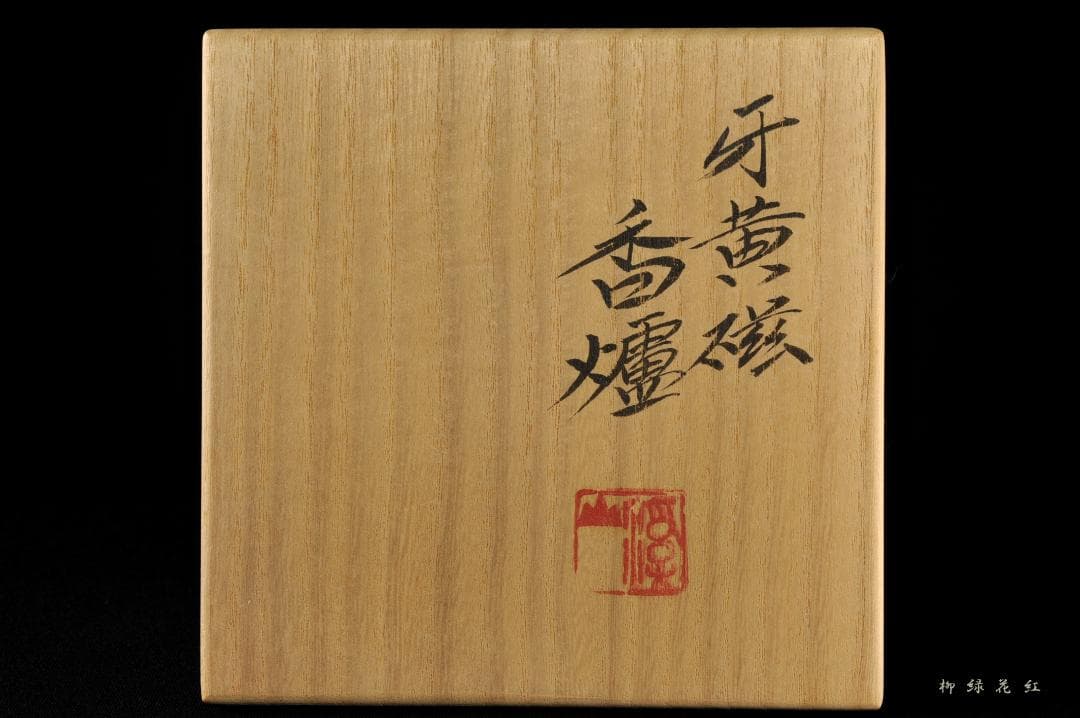 牙黄磁
香爐
柳绿花红